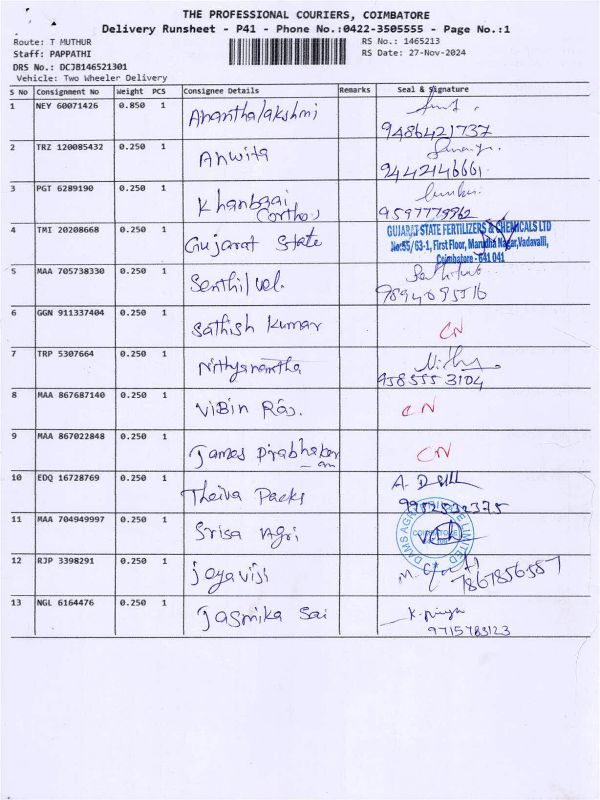 THE PROFESSIONAL COURIERS, COIMBATORE
Delivery Runsheet - P41 - Phone No.:0422-3505555 - Page No.:1
Route: T MUTHUR
RS No.: 1465213
Staff: PAPPATHI
RS Date: 27-Nov-2024
DRS No.: DCJB146521301
Vehicle: Two Wheeler Delivery
S No Consignment No Weight PCS Consignee Details Remarks Seal & Signature
1 NEY 60071426 0.850 1 Ananthalakshmi
9486421737
2 TRZ 120085432 0.250 1 Anwita
9442146661
3 PGT 6289190 0.250 1 Khanbzai
(ortho)
9597779962
4 TMI 20208668 0.250 1 Gujarat State
GUJARAT STATE FERTILIZERS & CHEMICALS LTD
No:55/63-1, First Floor, Marudha Nagar,Vadavalli,
Coimbatore - 641 041
5 MAA 705738330 0.250 1 Senthil vel.
6 GGN 911337404 0.250 1 Sathish Kumar CN
7 TRP 5307664 0.250 1 Nithyanantha
958555 3104
8 MAA 867687140 0.250 1 ViBin Raj. CN
9 MAA 867022848 0.250 1 James Prabhaker CN
10 EDQ 16728769 0.250 1 Theiva Packs
9952532375
11 MAA 704949997 0.250 1 Srisa Agri
COIMBATORE
12 RJP 3398291 0.250 1 jeyaviji
7867856587
13 NGL 6164476 0.250 1 Jasmika Sai K. Priya
9715783123